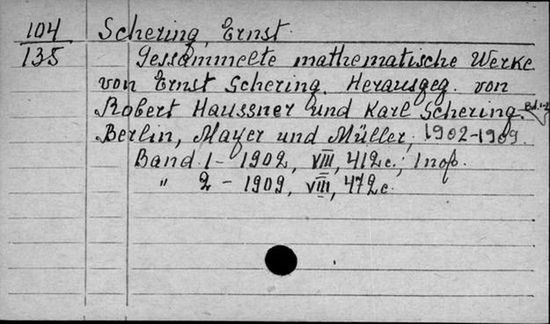 104 Schering, Ernst.
135 Gessammelte mathematische Werke
von Ernst Schering. Herausgeg. von
Robert Haussner und Karl Schering.
Berlin, Mayer und Müller, 1902-1909.
Band 1 - 1902, VIII, 412 c.; 1
" 2 - 1909, VIII, 472 c.